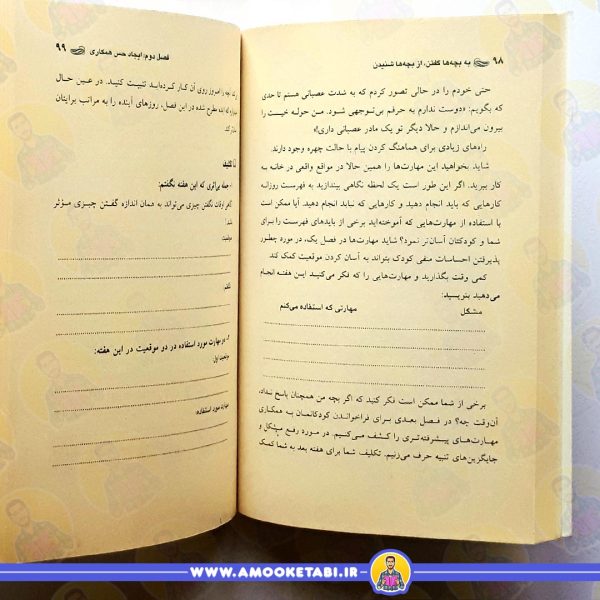 ۹۸ به بچه‌ها گفتن، از بچه‌ها شنیدن
حتی خودم را در حالی تصور کردم که به شدت عصبانی هستم تا حدی
که بگویم: «دوست ندارم به حرفم بی‌توجهی شود. من حوله خیست را
بیرون می‌اندازم و حالا دیگر تو یک مادر عصبانی داری!»
راه‌های زیادی برای هماهنگ کردن پیام با حالت چهره وجود دارند.
شاید بخواهید این مهارت‌ها را همین حالا در مواقع واقعی در خانه به
کار ببرید. اگر این طور است یک لحظه نگاهی بیندازید به فهرست روزانه
کارهایی که باید انجام دهید و کارهایی که نباید انجام دهید. آیا ممکن است
با استفاده از مهارت‌هایی که آموخته‌اید برخی از بایدهای فهرست را برای
شما و کودکتان آسان‌تر نمود؟ شاید مهارت‌ها در فصل یک، در مورد چطور
پذیرفتن احساسات منفی کودک بتواند به آسان کردن موقعیت کمک کند.
کمی وقت بگذارید و مهارت‌هایی را که فکر می‌کنید این هفته انجام
می‌دهید بنویسید:
مشکل مهارتی که استفاده می‌کنم
برخی از شما ممکن است فکر کنید که اگر بچه من همچنان پاسخ نداد،
آن‌وقت چه؟ در فصل بعدی برای فراخواندن کودکانمان به همکاری
مهارت‌های پیشرفته‌تری را کشف می‌کنیم. در مورد رفع مشکل و
جایگزین‌های تنبیه حرف می‌زنیم. تکلیف شما برای هفته بعد به شما کمک
فصل دوم: ایجاد حس همکاری ۹۹
آنچه را امروز روی آن کار کرده‌اید تثبیت کنید. در عین حال
طرح شده در این فصل، روزهای آینده را به مراتب برایتان
تکلیف
۱- جمله بی‌اثری که این هفته نگفتم:
گاهی اوقات نگفتن چیزی می‌تواند به همان اندازه گفتن چیزی مؤثر
باشد.
موقعیت:
نگفتم:
۲- دو مهارت مورد استفاده در دو موقعیت در این هفته:
موقعیت اول:
مهارت مورد استفاده:
WWW.AMOOKETABI.IR